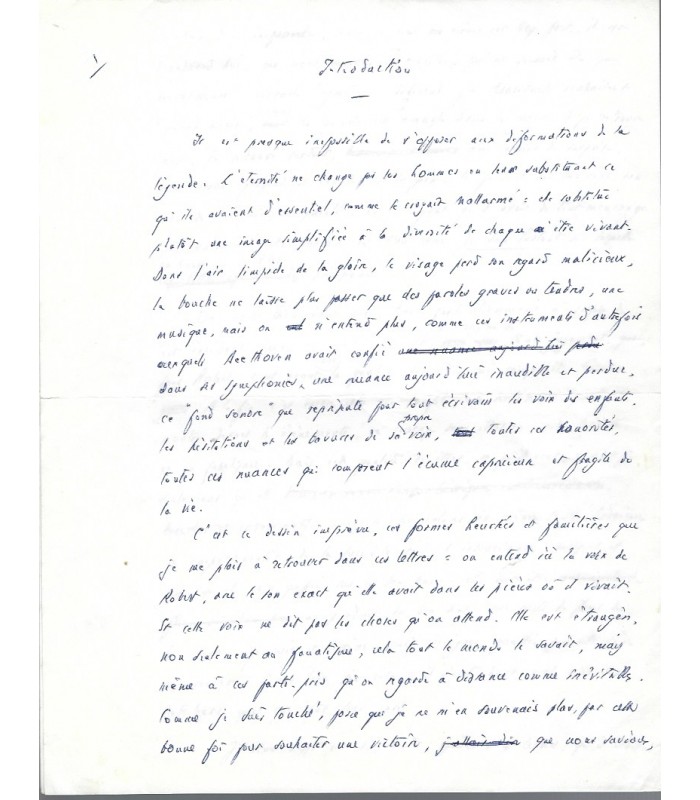 1/
Introduction
Il est presque impossible de s'opposer aux déformations de la
légende. L'éternité ne change pas les hommes en leur substituant ce
qu'ils avaient d'essentiel, comme le croyait Mallarmé : elle substitue
plutôt une image simplifiée à la diversité de chaque être vivant.
Dans l'air limpide de la gloire, le visage perd son regard malicieux,
la bouche ne laisse plus passer que des paroles graves ou tendres, une
musique, mais on n'entend plus, comme ces instruments d'autrefois
auxquels Beethoven avait confié une nuance aujourd'hui
dans ses symphonies, une nuance aujourd'hui inaudible et perdue,
ce "fond sonore" que représente pour tout écrivain les voix des enfants,
les hésitations et les bavures de sa propre voix, toutes ces sonorités,
toutes ces nuances qui composent l'écume capricieuse et fragile de
la vie.
C'est ce dessin imprévu, ces formes heurtées et familières que
je me plais à retrouver dans ces lettres : on entend ici la voix de
Robert, avec le son exact qu'elle avait dans les pièces où il vivait.
Et cette voix ne dit pas les choses qu'on attend. Elle est étrangère,
non seulement au fanatisme, cela tout le monde le savait, mais
même à ces partis-pris qu'on regarde à distance comme inévitables.
Comme je suis touché, parce que je ne m'en souvenais plus, par cette
bonne foi pour souhaiter une victoire, j'allais dire que nous savions,